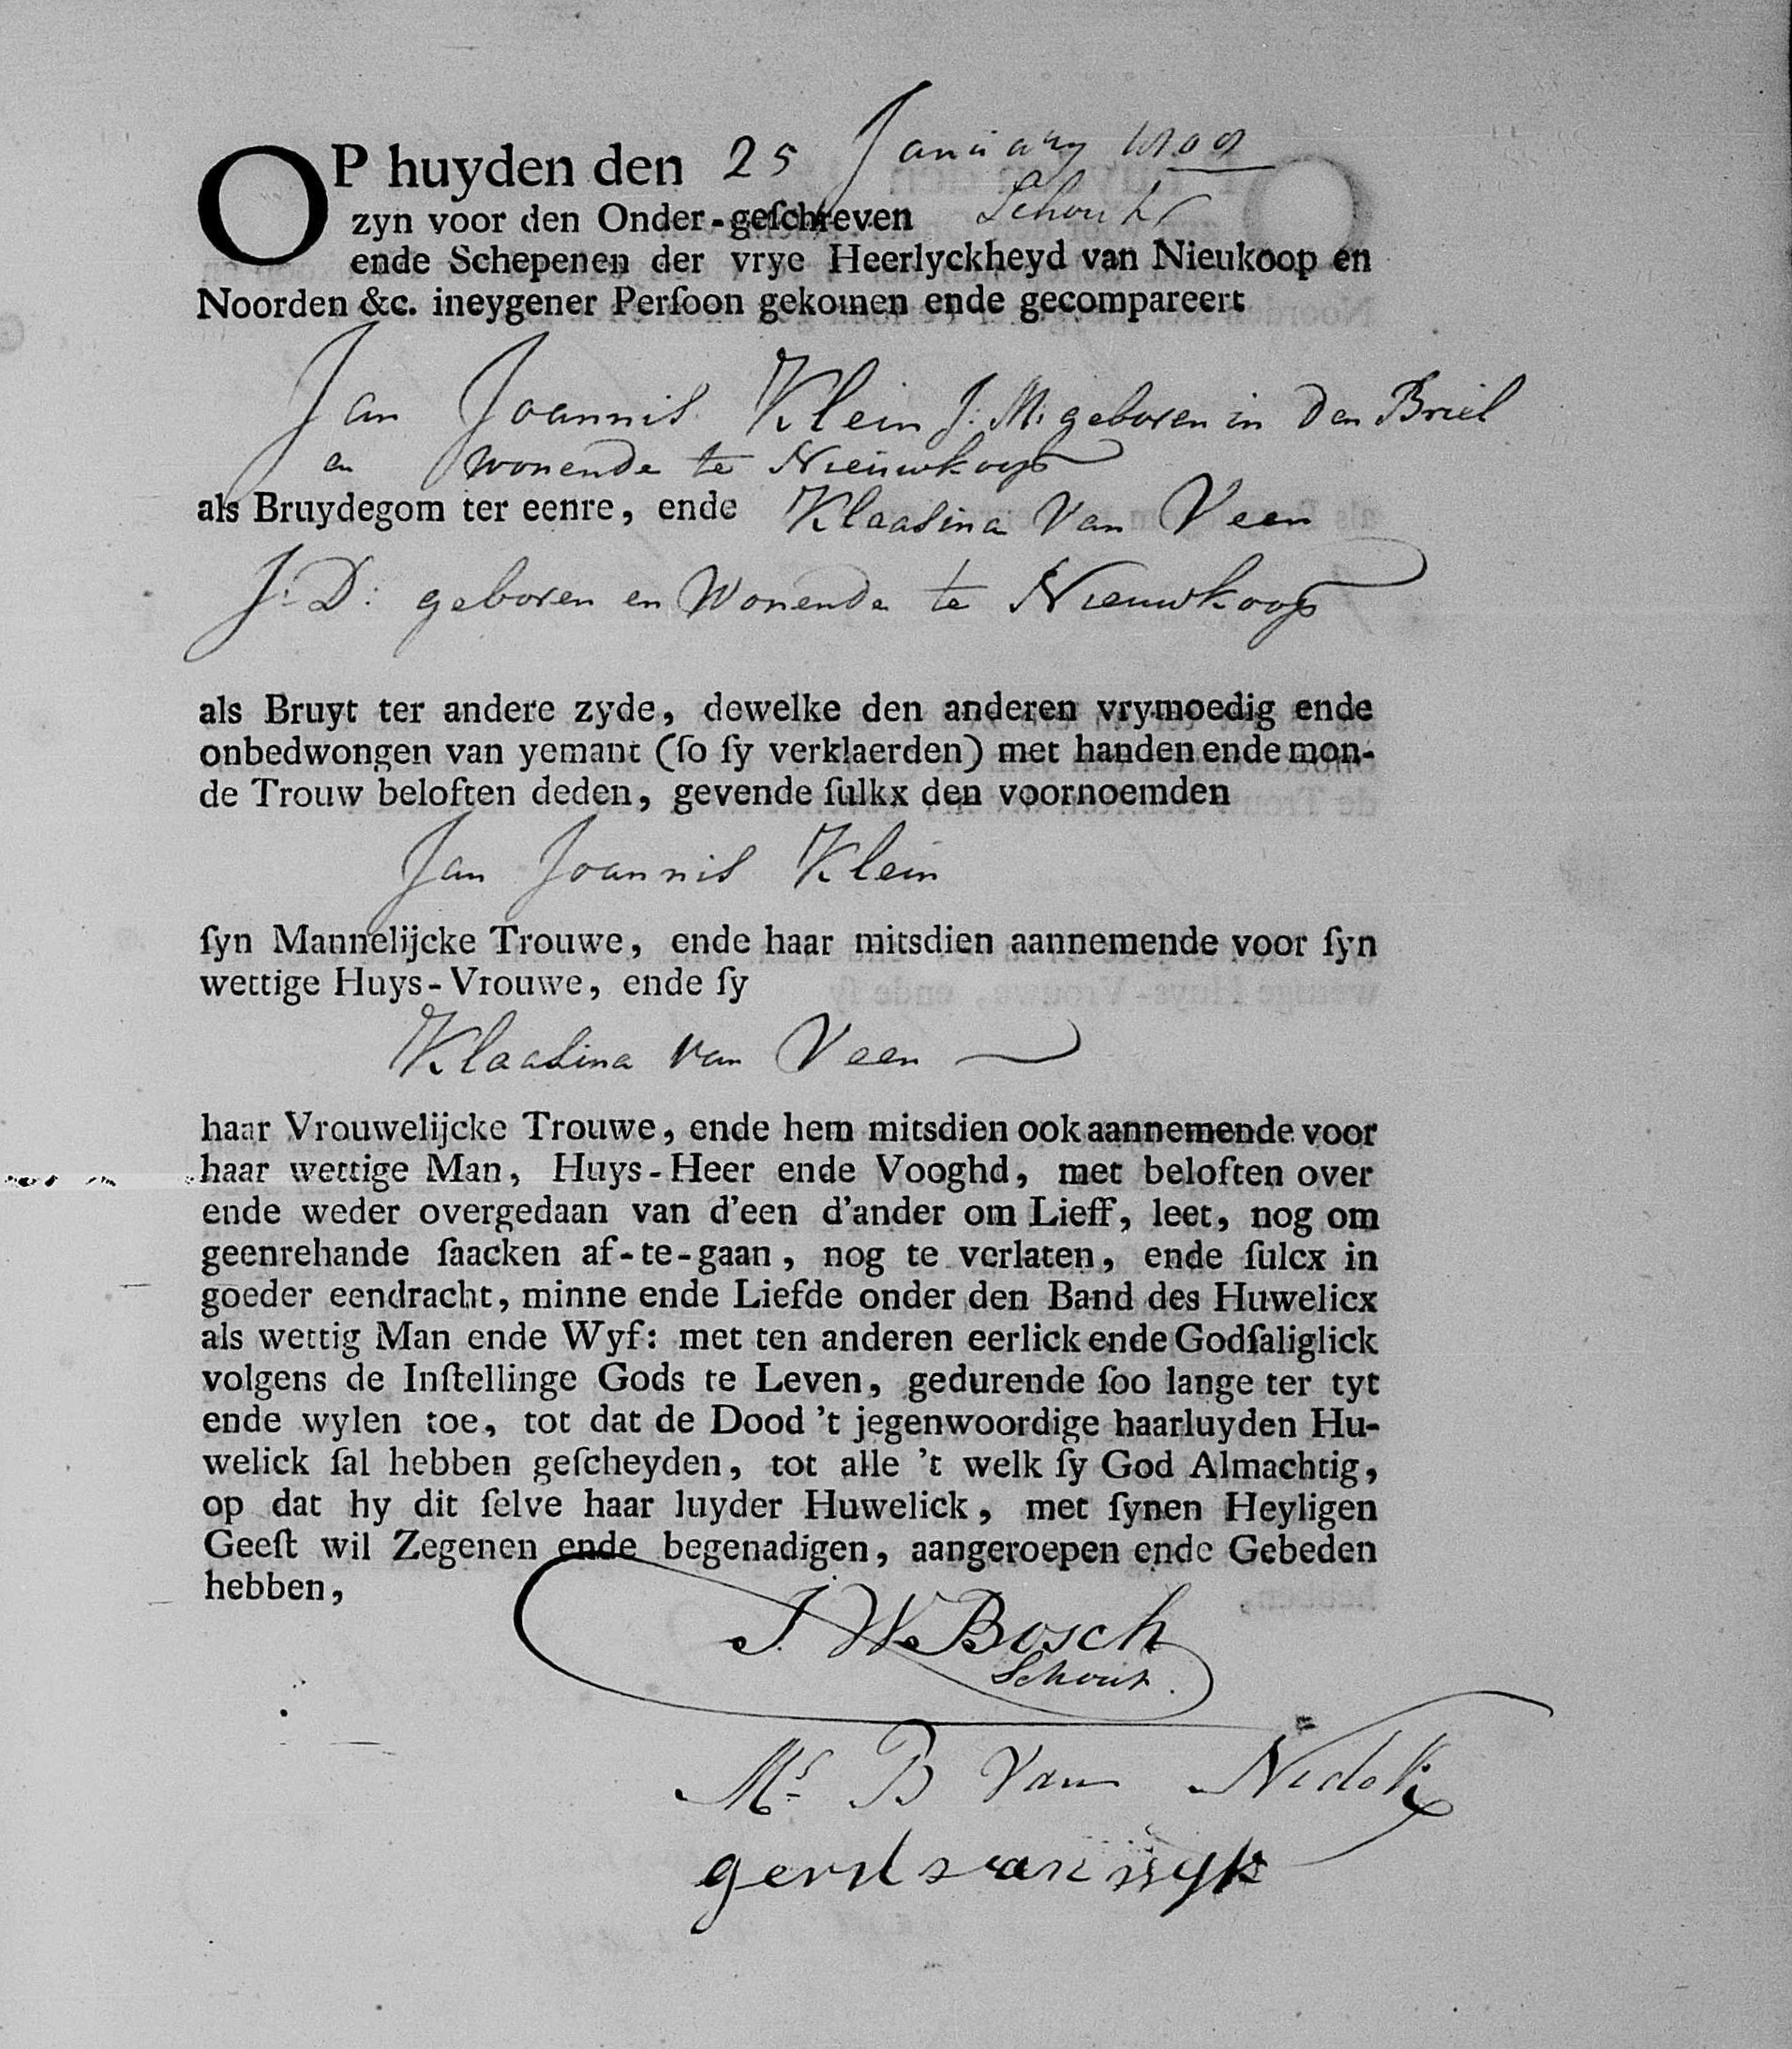 OP huyden den 25 January 1809
zyn voor den Onder-geſchreven Schout
ende Schepenen der vrye Heerlyckheyd van Nieukoop en
Noorden &c. ineygener Perſoon gekomen ende gecompareert
Jan Joannis Klein J: M: geboren in den Briel
en wonende te Nieuwkoop
als Bruydegom ter eenre, ende Klaasina Van Veen
J: D: geboren en Wonende te Nieuwkoop
als Bruyt ter andere zyde, dewelke den anderen vrymoedig ende
onbedwongen van yemant (ſo ſy verklaerden) met handen ende mon-
de Trouw beloften deden, gevende ſulkx den voornoemden
Jan Joannis Klein
ſyn Mannelijcke Trouwe, ende haar mitsdien aannemende voor ſyn
wettige Huys-Vrouwe, ende ſy
Klaasina van Veen
haar Vrouwelijcke Trouwe, ende hem mitsdien ook aannemende voor
haar wettige Man, Huys-Heer ende Vooghd, met beloften over
ende weder overgedaan van d'een d'ander om Lieff, leet, nog om
geenrehande ſaacken af-te-gaan, nog te verlaten, ende ſulcx in
goeder eendracht, minne ende Liefde onder den Band des Huwelicx
als wettig Man ende Wyf: met ten anderen eerlick ende Godſaliglick
volgens de Inſtellinge Gods te Leven, gedurende ſoo lange ter tyt
ende wylen toe, tot dat de Dood 't jegenwoordige haarluyden Hu-
welick ſal hebben geſcheyden, tot alle 't welk ſy God Almachtig,
op dat hy dit ſelve haar luyder Huwelick, met ſynen Heyligen
Geeſt wil Zegenen ende begenadigen, aangeroepen ende Gebeden
hebben,
J. W. Bosch
Schout.
Ms B Van